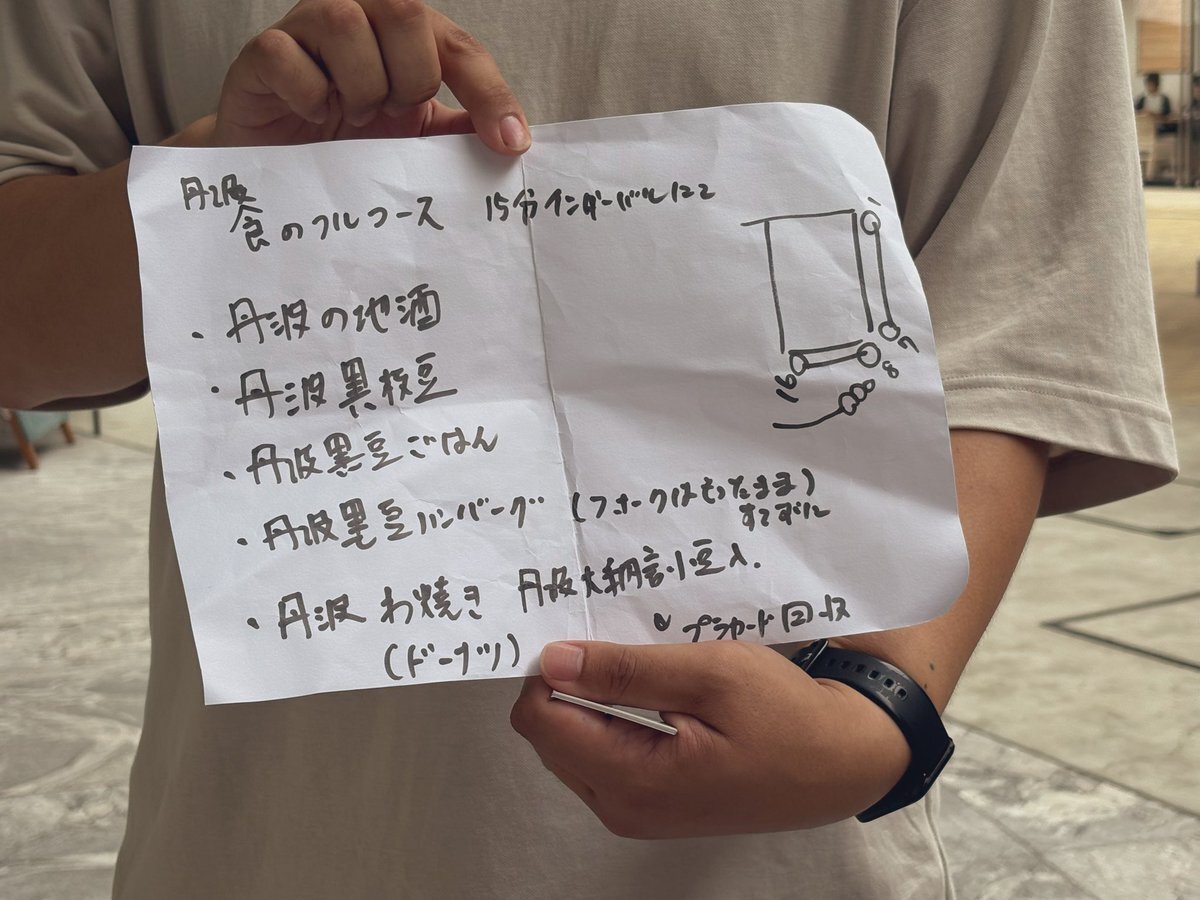 丹波
食のフルコース 15分インターバルにて
・丹波の地酒
・丹波黒枝豆
・丹波黒豆ごはん
・丹波黒豆ハンバーグ (フォークはもったまま)
すてずに
・丹波 わ焼き 丹波大納言小豆入.
(ドーナツ)
プラカード回収
1
7
8
16